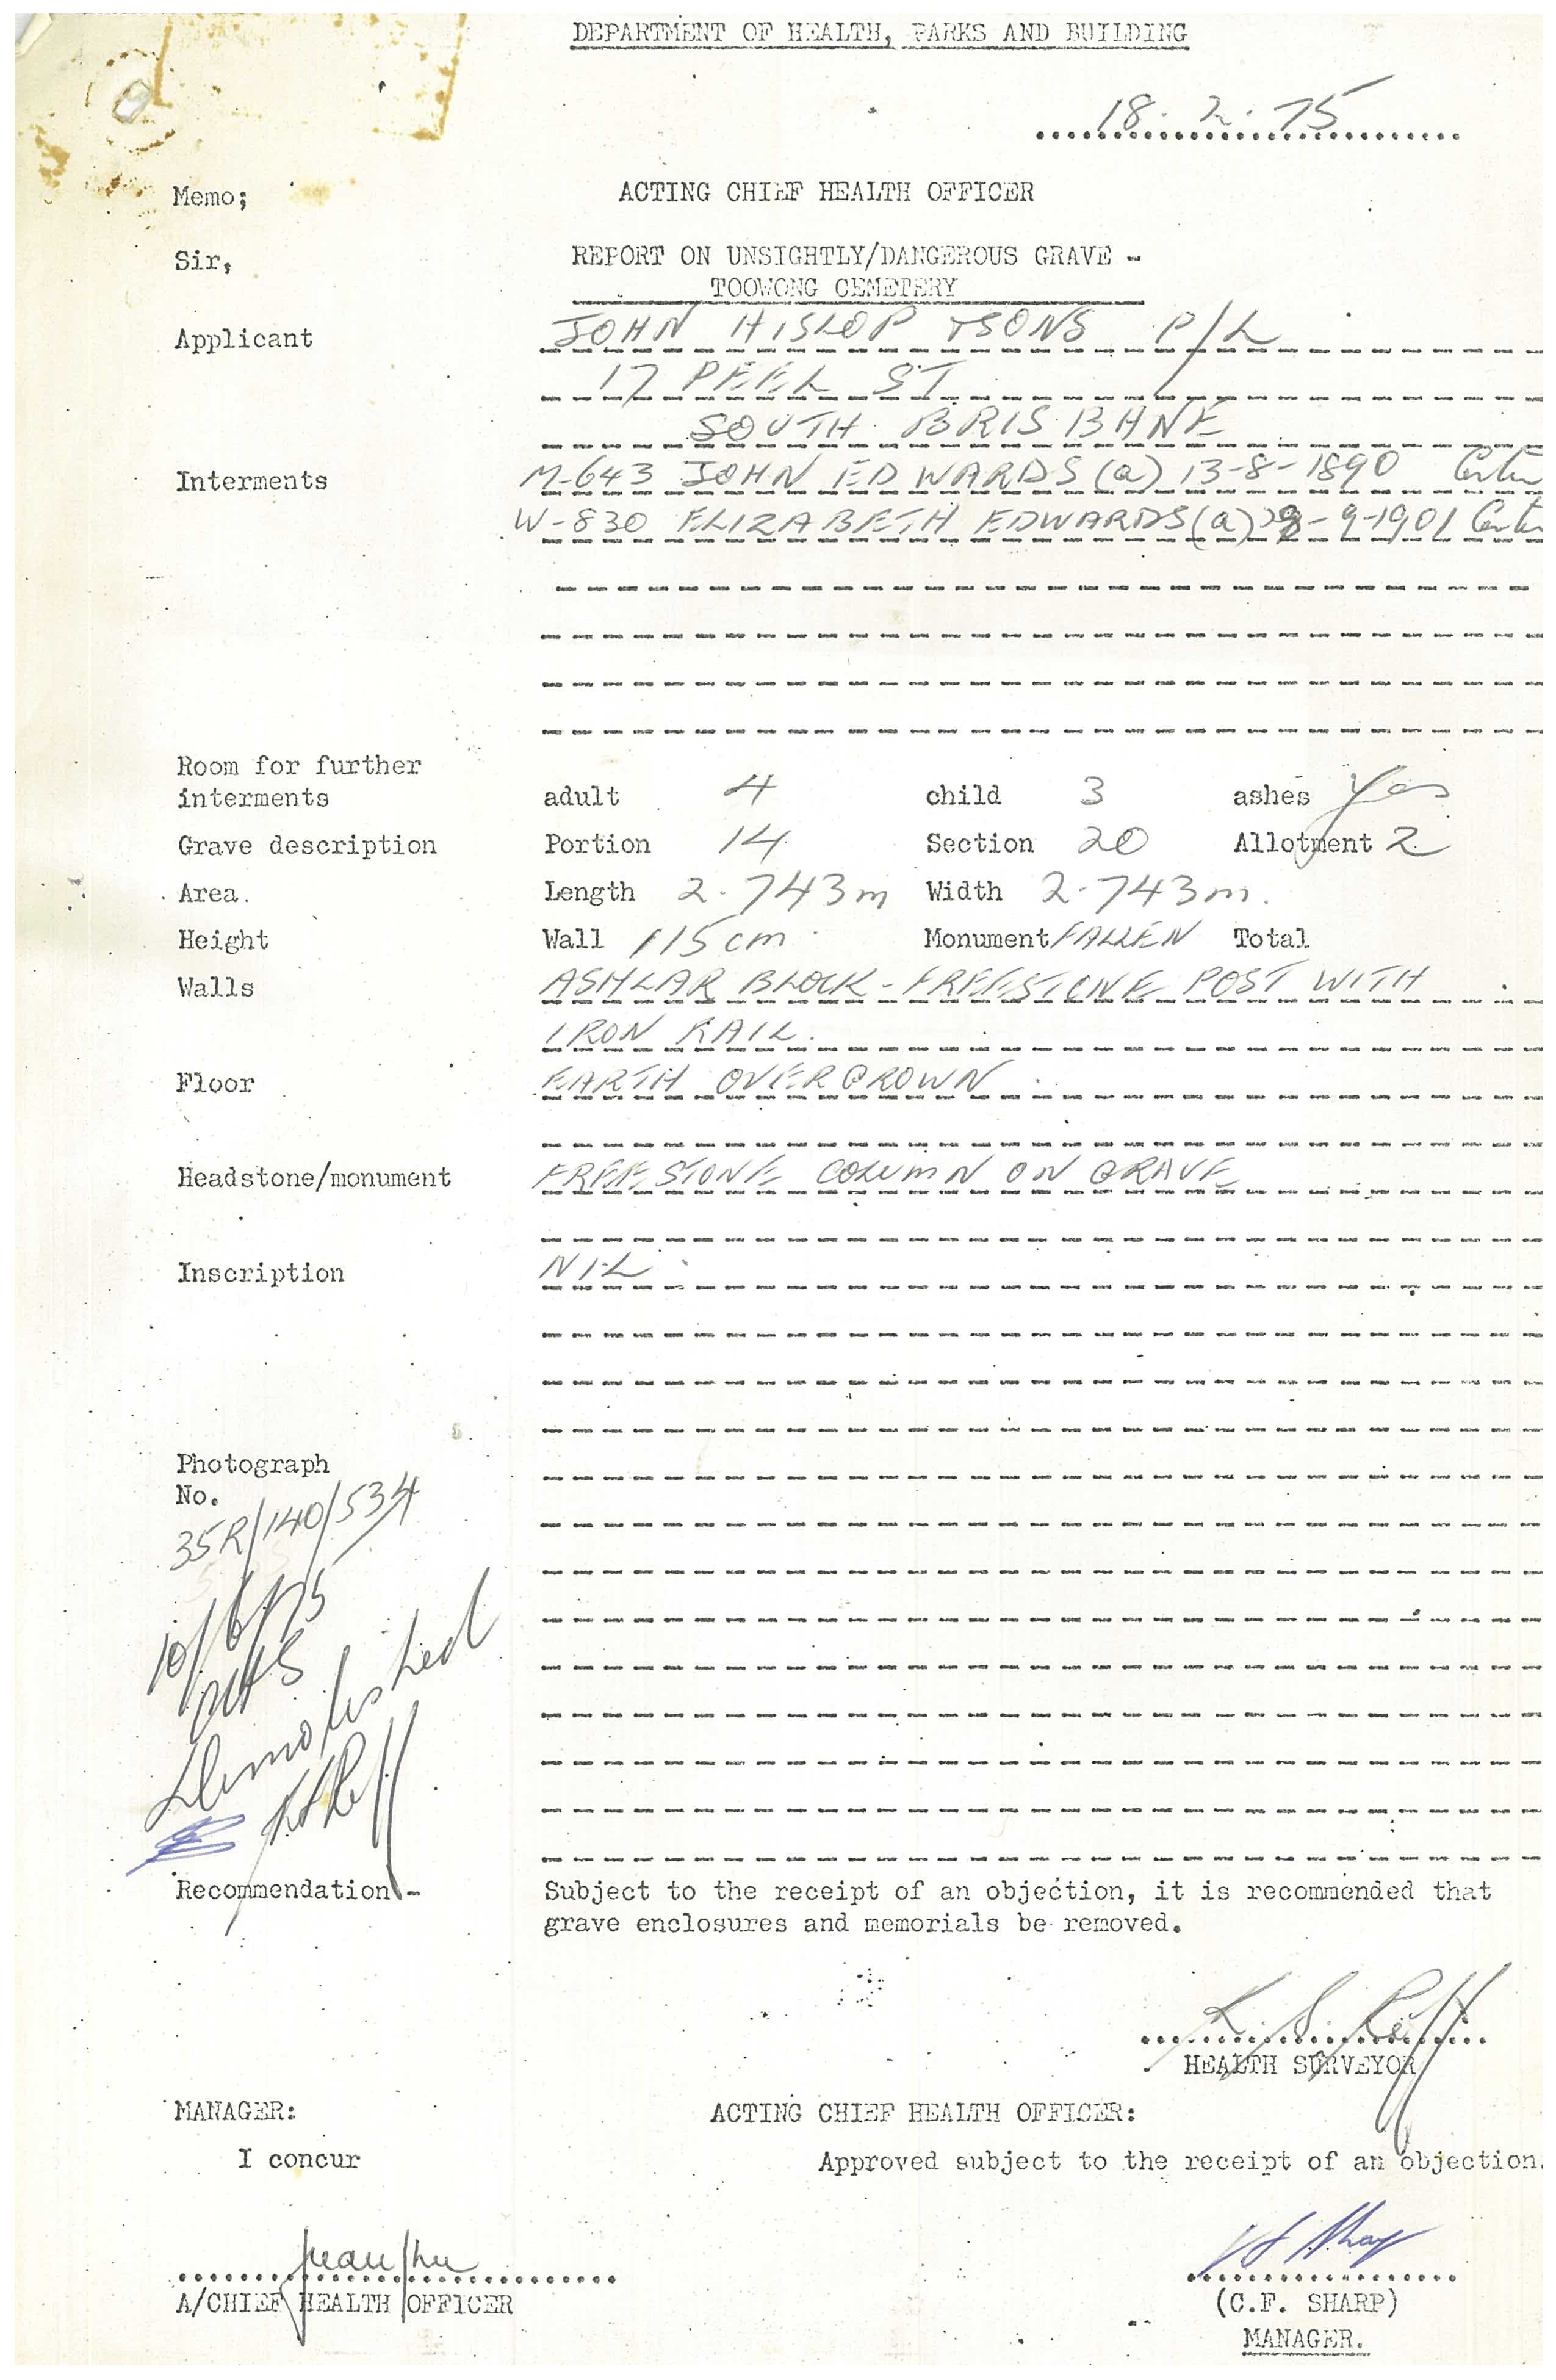 DEPARTMENT OF HEALTH, PARKS AND BUILDING
18. 2. 75
Memo; ACTING CHIEF HEALTH OFFICER
Sir, REPORT ON UNSIGHTLY/DANGEROUS GRAVE -
TOOWONG CEMETERY
Applicant JOHN HISLOP & SONS P/L
17 PEEL ST
SOUTH BRISBANE
Interments M-643 JOHN EDWARDS (a) 13-8-1890
W-830 ELIZABETH EDWARDS (a) -9-1901
Room for further
interments adult 4 child 3 ashes Yes
Grave description Portion 14. Section 20 Allotment 2.
Area. Length 2.743m Width 2.743m.
Height Wall 115cm Monument FALLEN Total
Walls ASHLAR BLOCK - FREESTONE POST WITH
IRON RAIL.
Floor EARTH OVERGROWN
Headstone/monument FREESTONE COLUMN ON GRAVE
Inscription NIL
Photograph
No.
35R/140/534
10/6/75
Demolished
Recommendation - Subject to the receipt of an objection, it is recommended that
grave enclosures and memorials be removed.
HEALTH SURVEYOR
MANAGER: ACTING CHIEF HEALTH OFFICER:
I concur Approved subject to the receipt of an objection.
A/CHIEF HEALTH OFFICER (C.F. SHARP)
MANAGER.